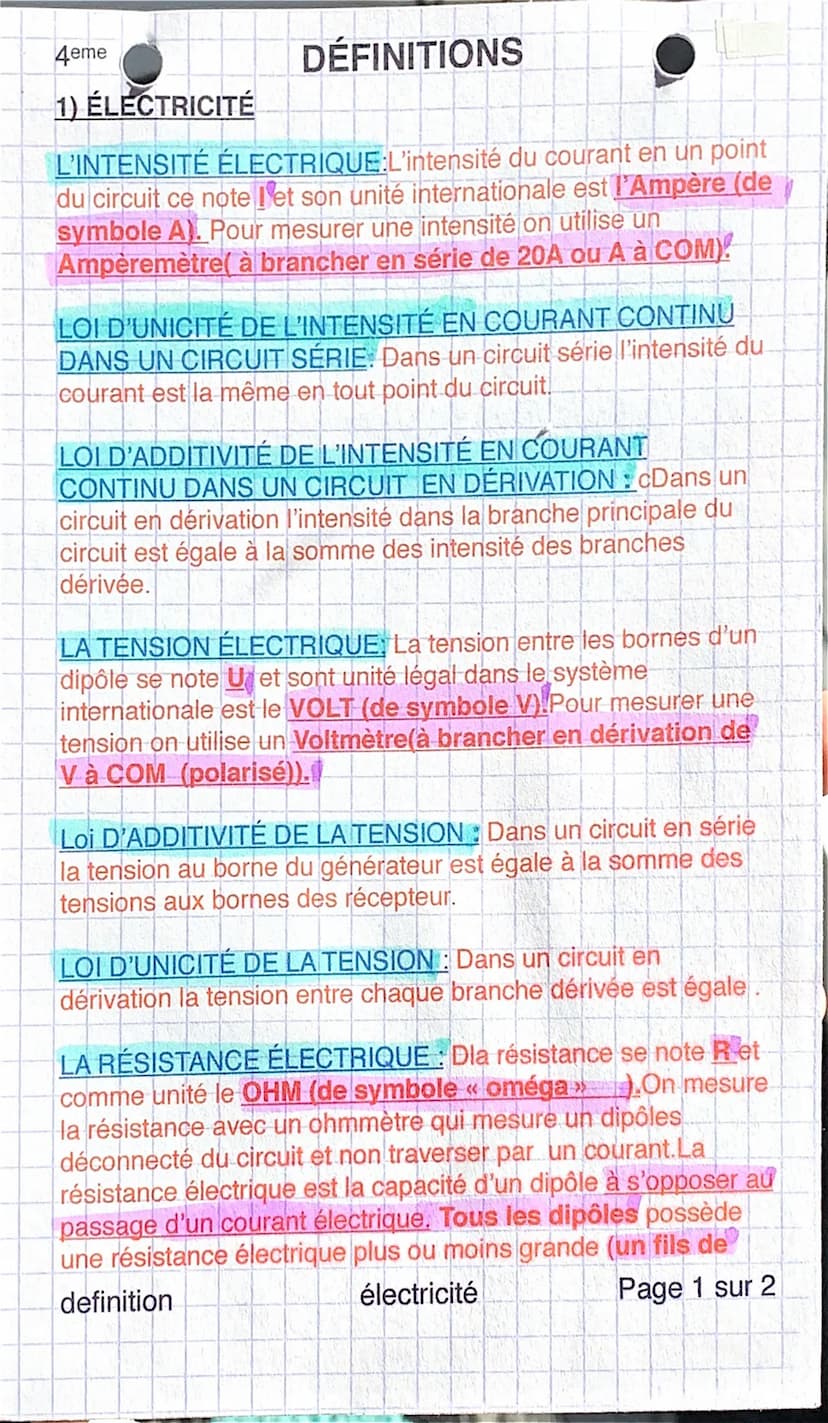 4eme DÉFINITIONS
1) ÉLECTRICITÉ
L'INTENSITÉ ÉLECTRIQUE:L'intensité du courant en un point
du circuit ce note I et son unité internationale est l'Ampère (de
symbole A). Pour mesurer une intensité on utilise un
Ampèremètre( à brancher en série de 20A ou A à COM).
LOI D'UNICITÉ DE L'INTENSITÉ EN COURANT CONTINU
DANS UN CIRCUIT SÉRIE: Dans un circuit série l'intensité du
courant est la même en tout point du circuit.
LOI D'ADDITIVITÉ DE L'INTENSITÉ EN COURANT
CONTINU DANS UN CIRCUIT EN DÉRIVATION : cDans un
circuit en dérivation l'intensité dans la branche principale du
circuit est égale à la somme des intensité des branches
dérivée.
LA TENSION ÉLECTRIQUE: La tension entre les bornes d'un
dipôle se note U, et sont unité légal dans le système
internationale est le VOLT (de symbole V).Pour mesurer une
tension on utilise un Voltmètre(à brancher en dérivation de
V à COM (polarisé)).
Loi D'ADDITIVITÉ DE LA TENSION : Dans un circuit en série
la tension au borne du générateur est égale à la somme des
tensions aux bornes des récepteur.
LOI D'UNICITÉ DE LA TENSION : Dans un circuit en
dérivation la tension entre chaque branche dérivée est égale .
LA RÉSISTANCE ÉLECTRIQUE : Dla résistance se note R et
comme unité le OHM (de symbole « oméga » ).On mesure
la résistance avec un ohmmètre qui mesure un dipôles
déconnecté du circuit et non traverser par un courant.La
résistance électrique est la capacité d'un dipôle à s'opposer au
passage d'un courant électrique. Tous les dipôles possède
une résistance électrique plus ou moins grande (un fils de
definition électricité Page 1 sur 2